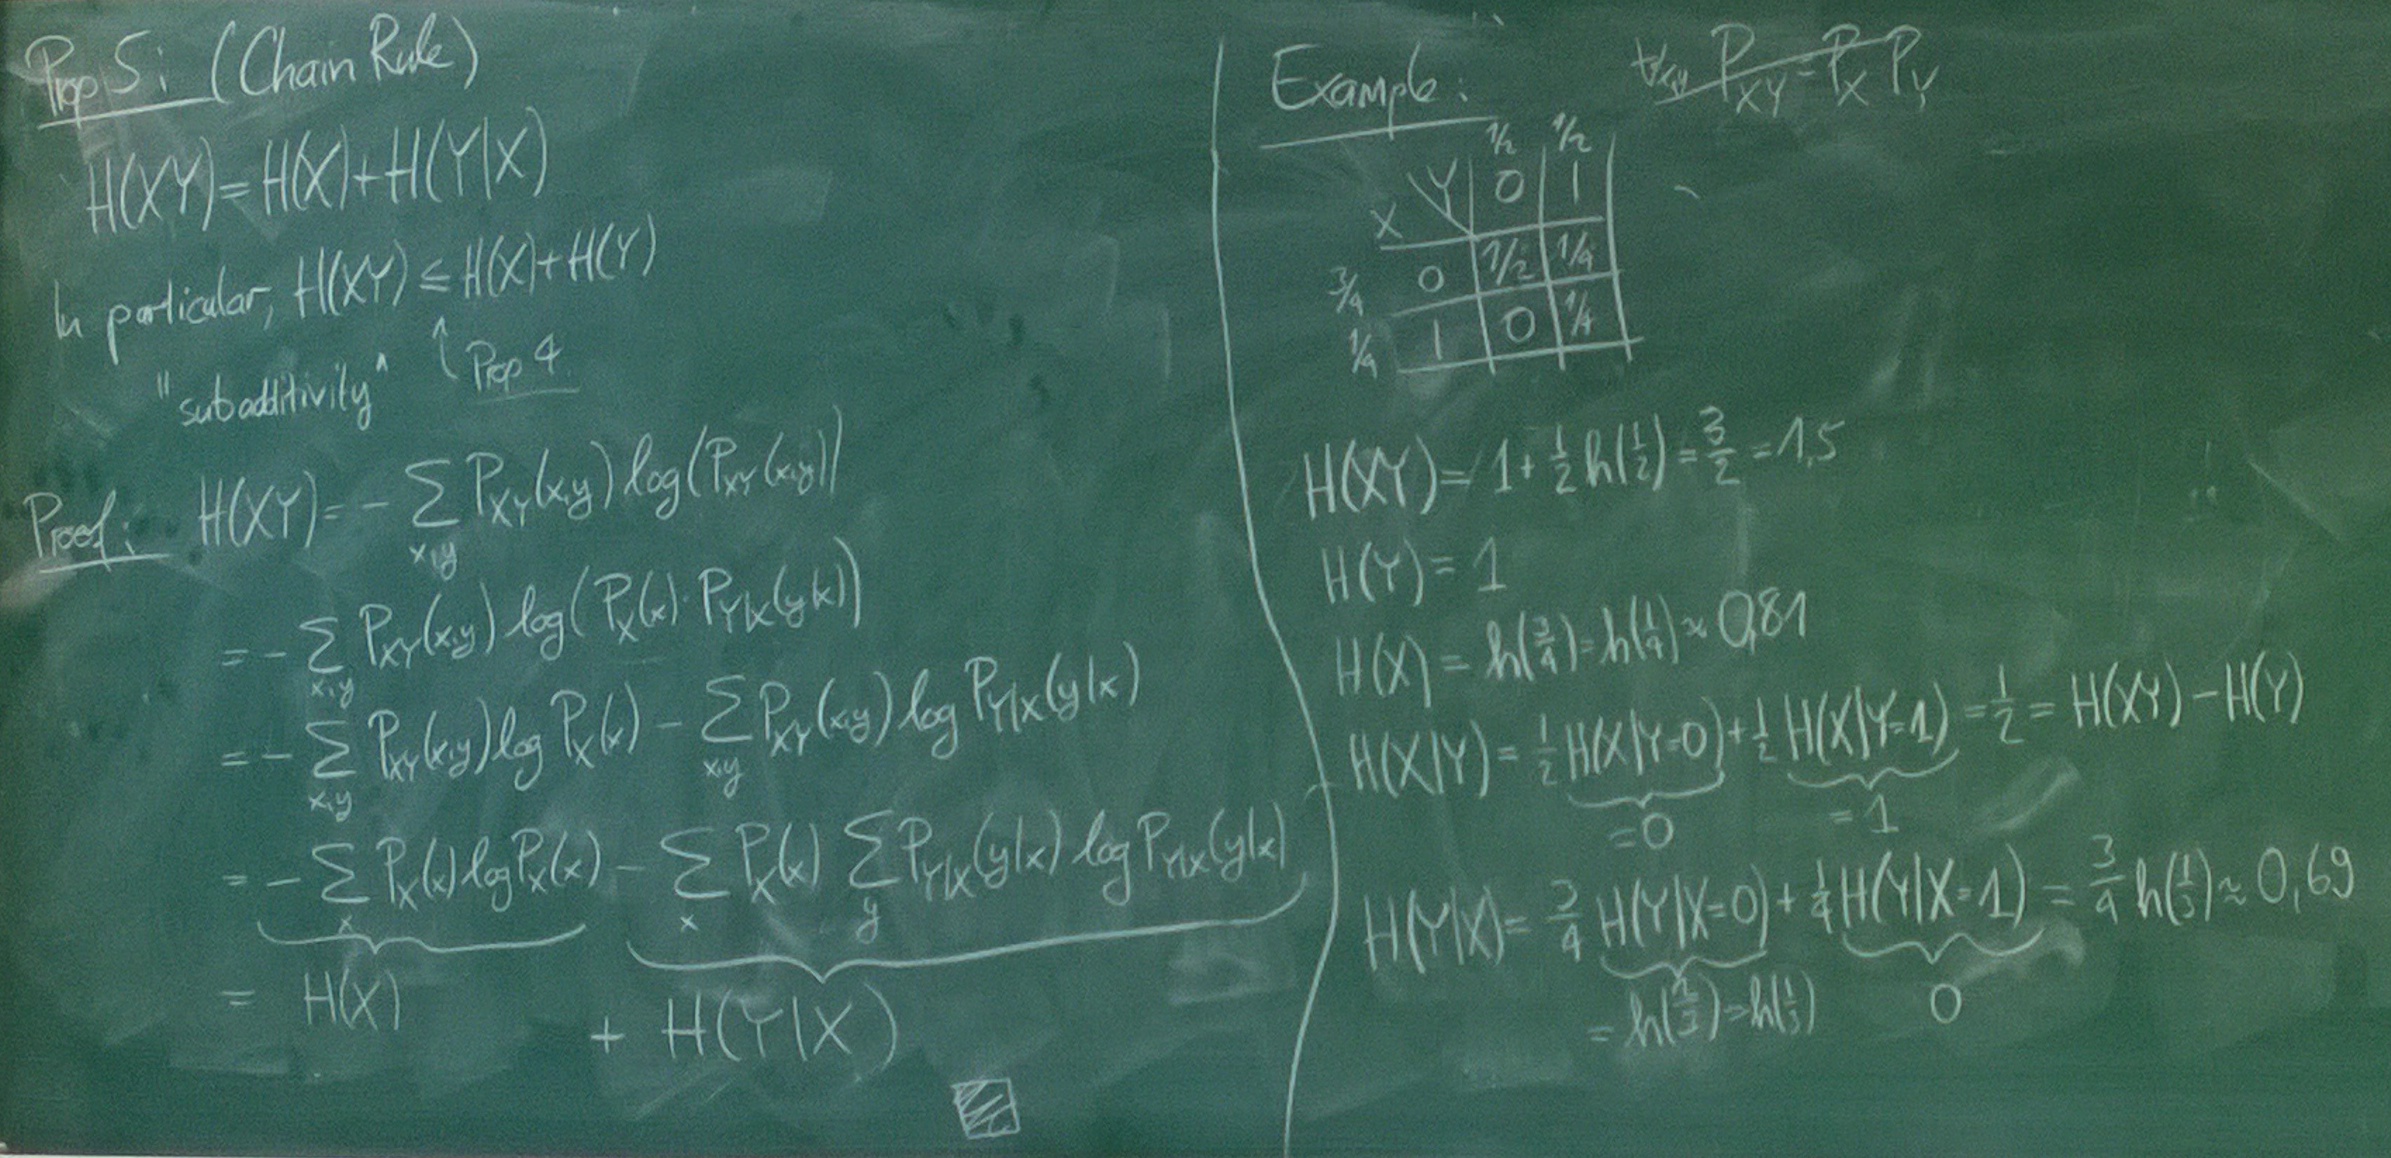 Prop 5: (Chain Rule)
H(XY) = H(X) + H(Y|X)
In particular, H(XY) ≤ H(X) + H(Y)
"subadditivity" Prop 4
Proof: H(XY) = - ∑_{x,y} P_{XY}(x,y) log(P_{XY}(x,y))
= - ∑_{x,y} P_{XY}(x,y) log(P_X(x) · P_{Y|X}(y|x))
= - ∑_{x,y} P_{XY}(x,y) log P_X(x) - ∑_{x,y} P_{XY}(x,y) log P_{Y|X}(y|x)
= - ∑_x P_X(x) log P_X(x) - ∑_x P_X(x) ∑_y P_{Y|X}(y|x) log P_{Y|X}(y|x)
= H(X) + H(Y|X)
Example: ∀x,y P_{XY} = P_X P_Y
1/2 1/2
X Y 0 1
3/4 0 1/2 1/4
1/4 1 0 1/4
H(XY) = 1 + 1/2 h(1/2) = 3/2 = 1,5
H(Y) = 1
H(X) = h(3/4) = h(1/4) ≈ 0,81
H(X|Y) = 1/2 H(X|Y=0) + 1/2 H(X|Y=1) = 1/2 = H(XY) - H(Y)
=0 =1
H(Y|X) = 3/4 H(Y|X=0) + 1/4 H(Y|X=1) = 3/4 h(1/3) ≈ 0,69
= h(2/3) = h(1/3) 0